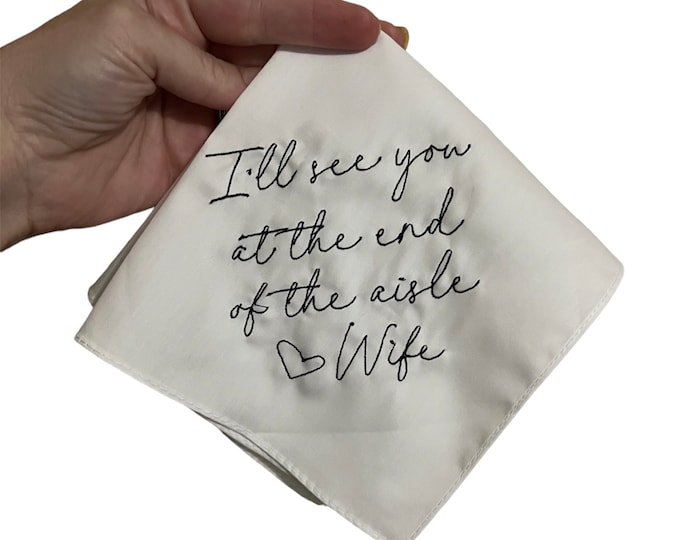 I'll see you
at the end
of the aisle
♡ Wife